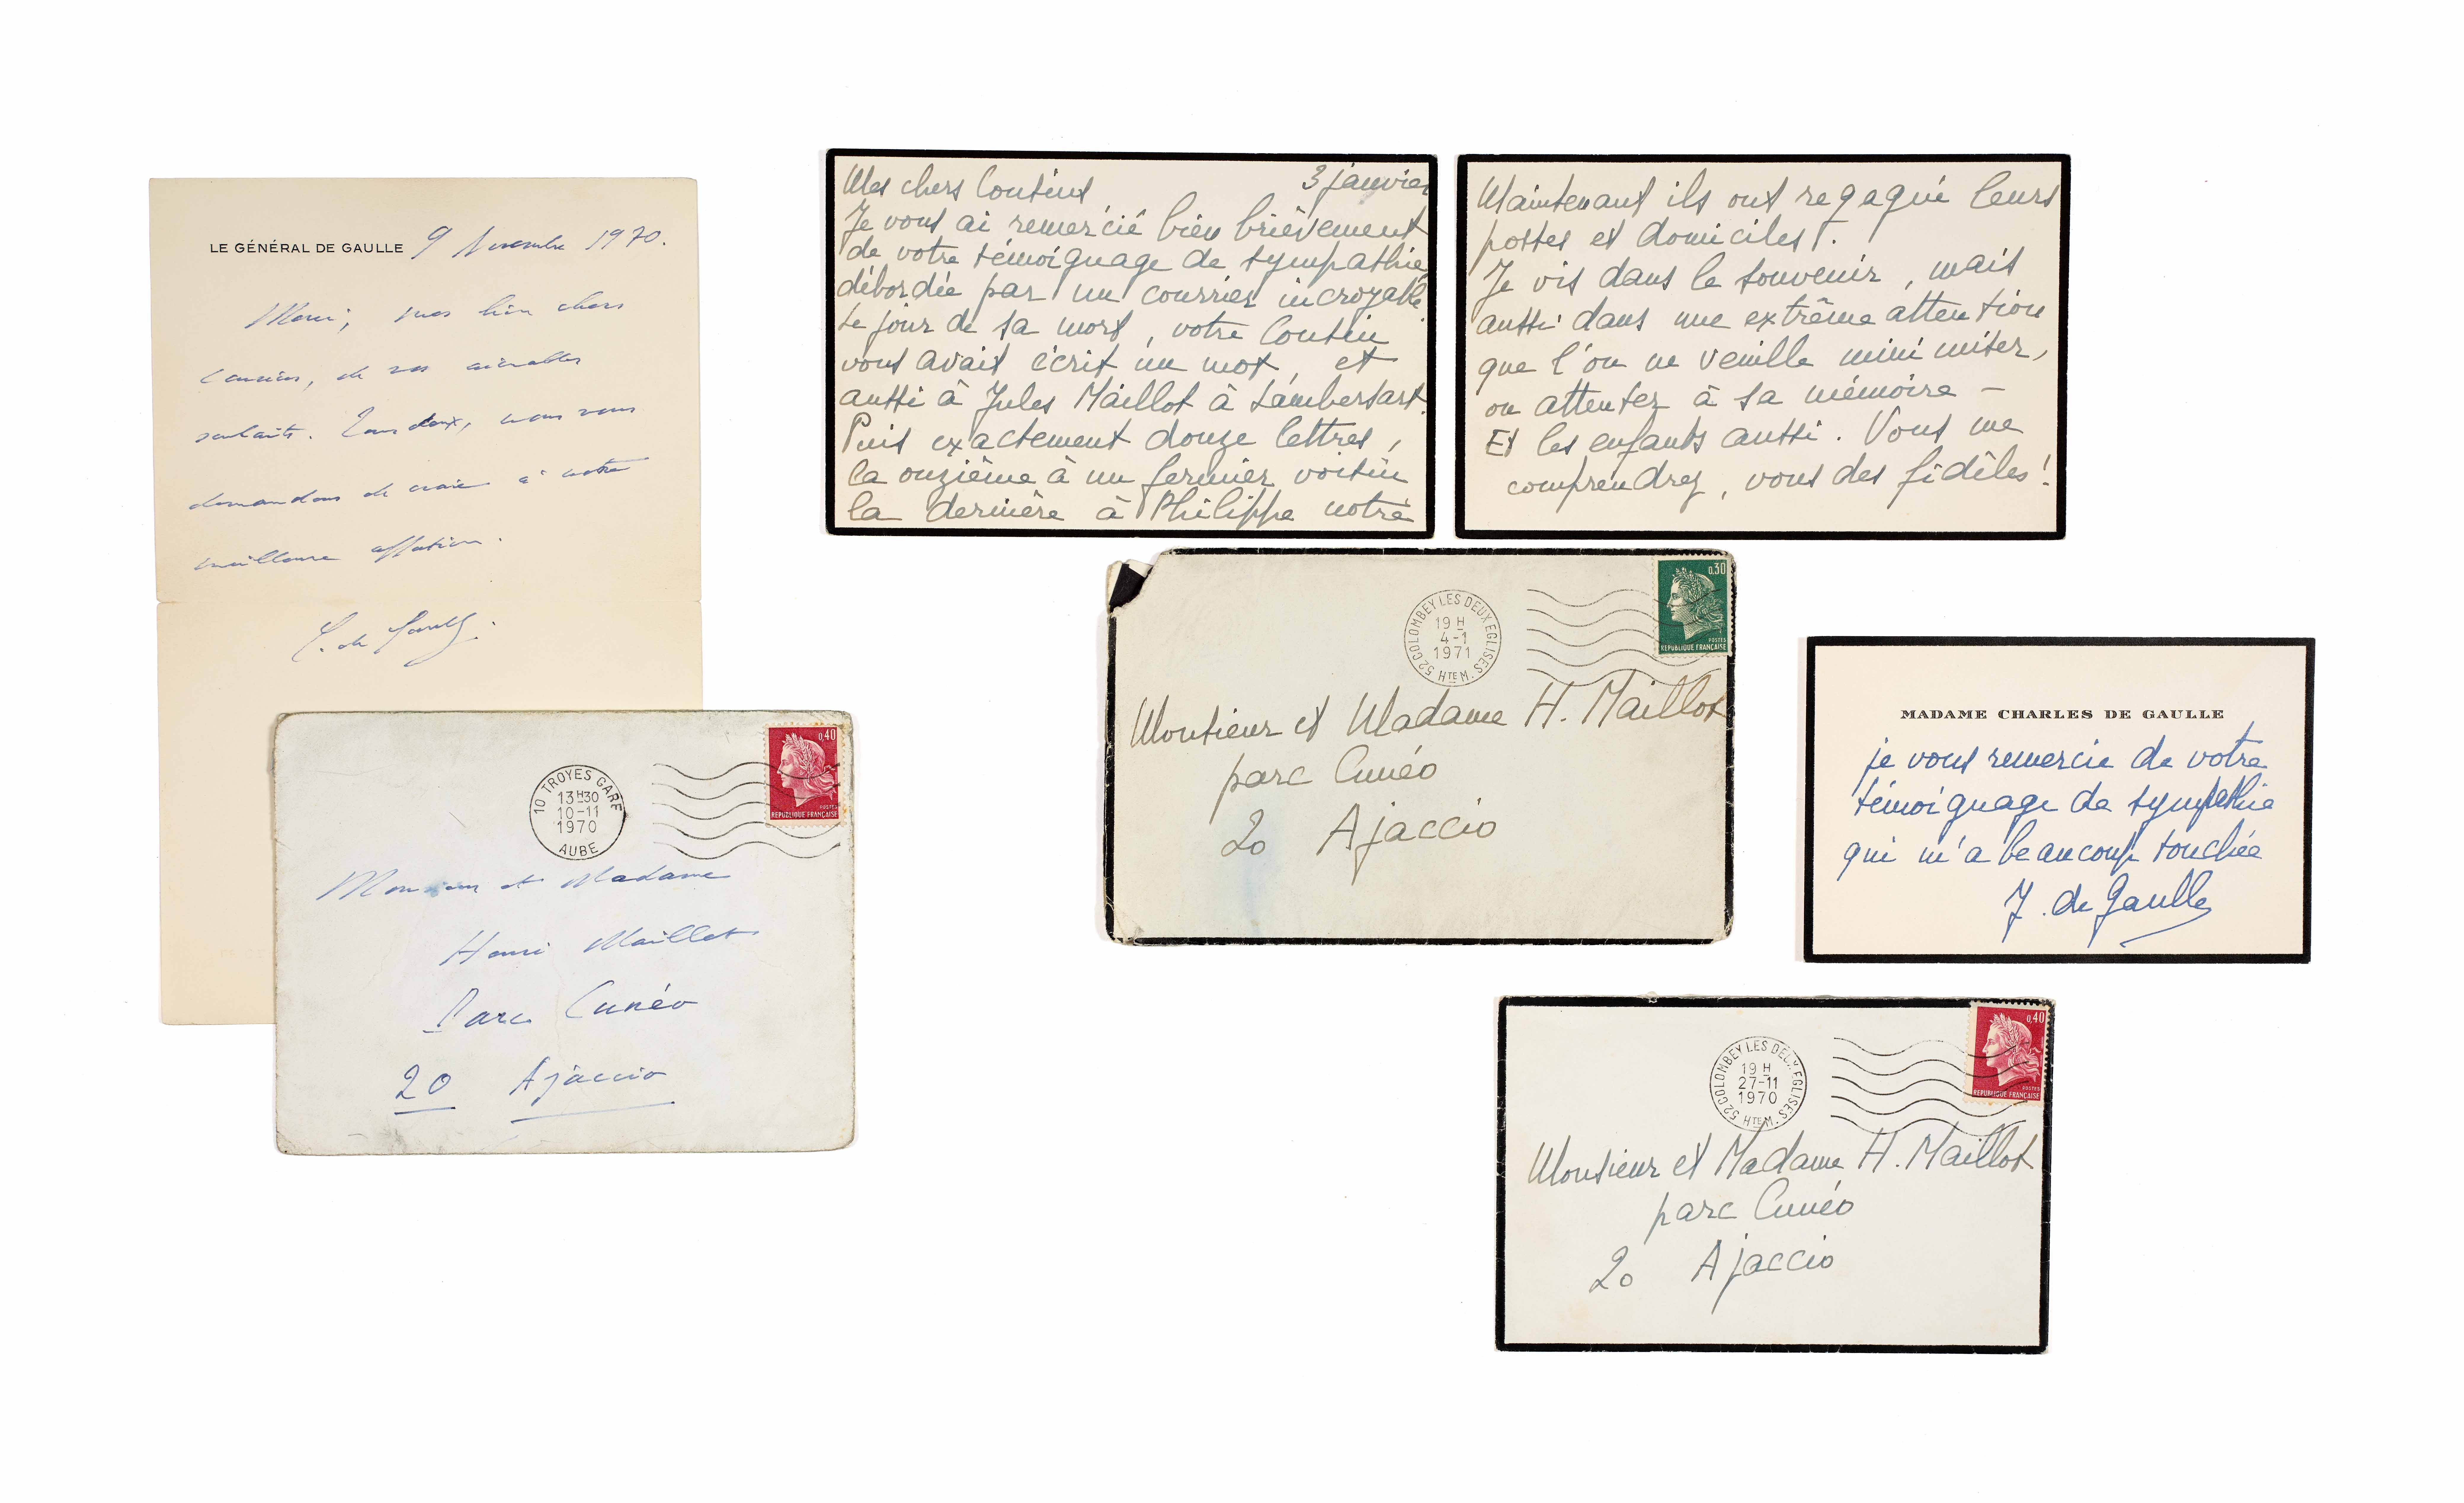 LE GÉNÉRAL DE GAULLE 9 Novembre 1970.
Merci, mes bien chers
cousins, de vos aimables
souhaits. Tous deux, nous vous
demandons de croire à notre
meilleure affection.
C. de Gaulle.
10 TROYES GARE
13H30
10-11
1970
AUBE
0,40
POSTES
REPUBLIQUE FRANÇAISE
Monsieur et Madame
Henri Maillot
Parc Cunéo
20 Ajaccio
Mes chers Cousins 3 janvier
Je vous ai remercié bien brièvement
de votre témoignage de sympathie
débordée par un courrier incroyable
Le jour de sa mort, votre Cousin
vous avait écrit un mot, et
aussi à Jules Maillot à Lambersart.
Puis exactement douze lettres,
la onzième à un fermier voisin
la dernière à Philippe notre
Maintenant ils ont regagné leurs
postes et domiciles.
Je vis dans le souvenir, mais
aussi dans une extrême attention
que l'on ne veuille minimiser,
ou attenter à sa mémoire –
Et les enfants aussi. Vous me
comprendrez, vous des fidèles!
52 COLOMBEY LES DEUX EGLISES
19 H
4-1
1971
HTE M.
0,30
POSTES
REPUBLIQUE FRANÇAISE
Monsieur et Madame H. Maillot
parc Cunéo
20 Ajaccio
MADAME CHARLES DE GAULLE
je vous remercie de votre
témoignage de sympathie
qui m'a beaucoup touchée
Y. de Gaulle
52 COLOMBEY LES DEUX EGLISES
19 H
27-11
1970
HTE M.
0,40
POSTES
REPUBLIQUE FRANÇAISE
Monsieur et Madame H. Maillot
parc Cunéo
20 Ajaccio